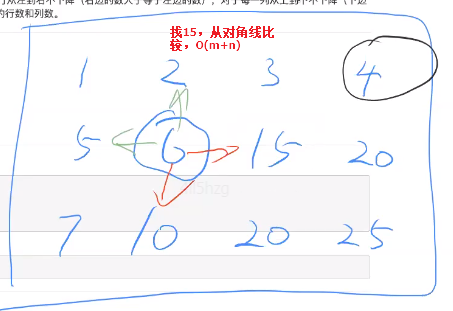 从左到右不下降（右边的数大于等于左边的数），对于每一列从上到下不下降（下边
的行数和列数。
找15，从对角线比
较，O(m+n)
1 2 3 4
5 6 15 20
7 10 20 25